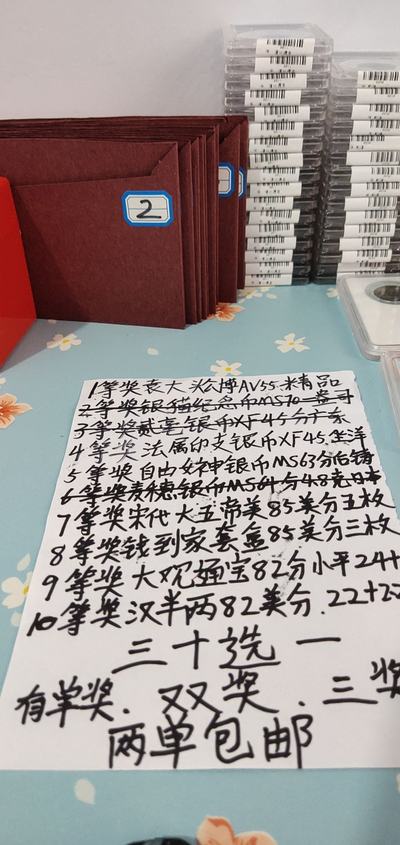 2
1等奖袁大头公博AV55.精品
2等奖银猫纪念币MS70一盎司
3等奖贰毫银币XF45分广东
4等奖 法属印支银币XF45.坐洋
5等奖自由女神银币MS63分后铸
6等奖麦德银币MS64分4.8克日本
7等奖宋代大五帝美85美分五枚
8等奖钱到家套盒85美分三枚
9等奖 大观通宝82分小平24+
10等奖 汉半两82美分.22+22
三十选一
有单奖.双奖.三奖
两单包邮